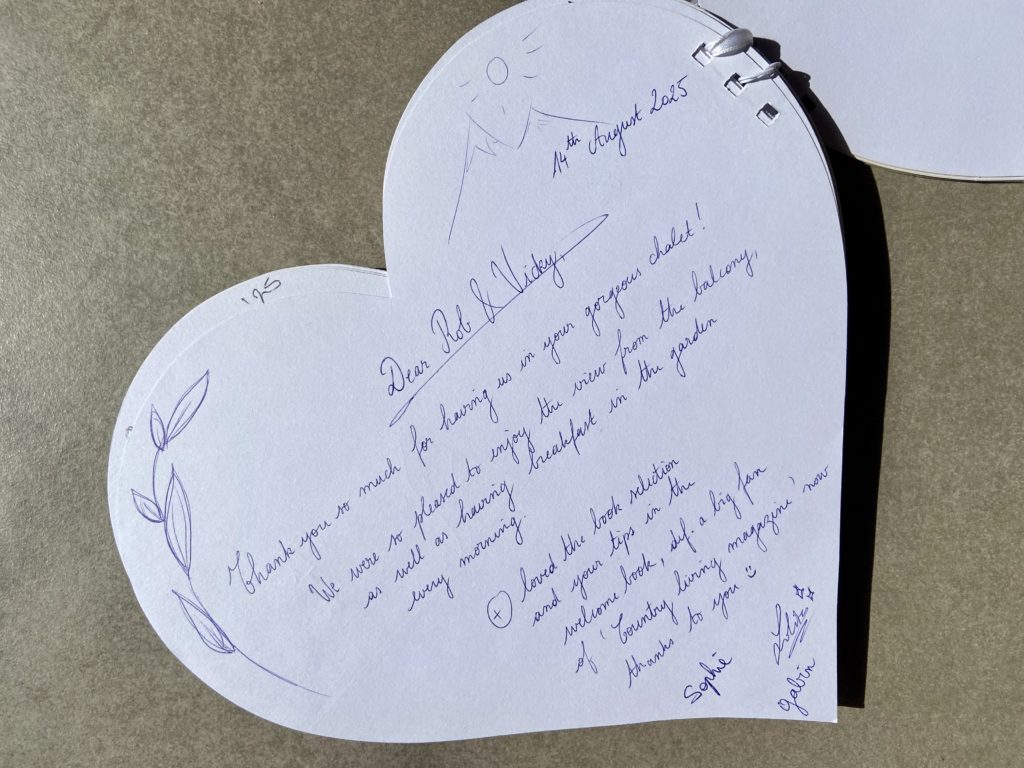 14th August 2025
'25
Dear Rob & Vicky,
Thank you so much for having us in your gorgeous chalet!
We were so pleased to enjoy the view from the balcony,
as well as having breakfast in the garden
every morning.
+ loved the book selection
and your tips in the
welcome book, def. a big fan
of 'Country living magazine' now
thanks to you :)
Sophie
Gabin